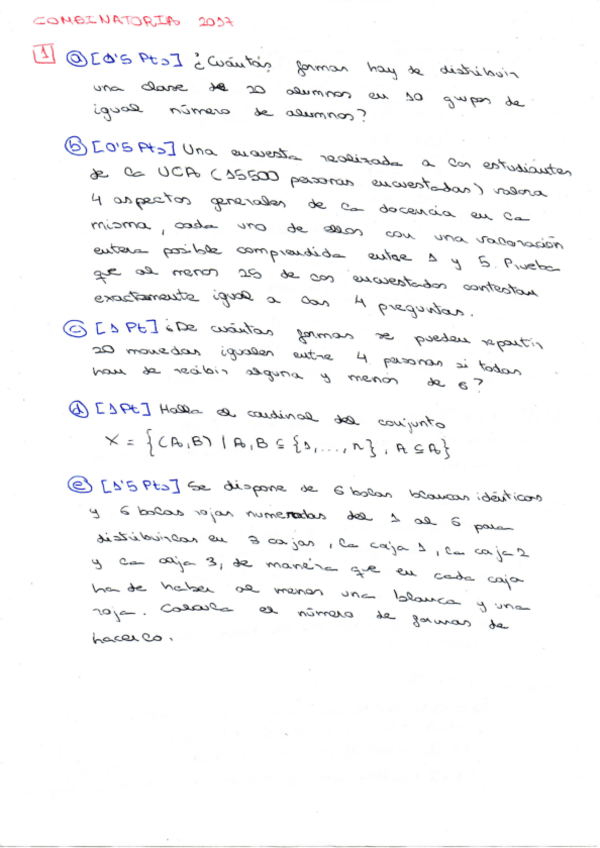 COMBINATORIA 2017
1 a [0'5 Pts] ¿Cuántas formas hay de distribuir
una clase de 20 alumnos en 10 grupos de
igual número de alumnos?
b [0'5 Pts] Una encuesta realizada a los estudiantes
de la UCA (15500 personas encuestadas) valora
4 aspectos generales de la docencia en la
misma, cada uno de ellos con una valoración
entera posible comprendida entre 1 y 5. Prueba
que al menos 25 de los encuestados contestan
exactamente igual a las 4 preguntas.
c [1 Pt] ¿De cuántas formas se pueden repartir
20 monedas iguales entre 4 personas si todas
han de recibir alguna y menos de 6?
d [1Pt] Halla el cardinal del conjunto
X = {(A,B) | A,B ⊆ {1,...,n}, A ⊆ A}
e [1'5 Pts] Se dispone de 6 bolas blancas idénticas
y 6 bolas rojas numeradas del 1 al 6 para
distribuirlas en 3 cajas, la caja 1, la caja 2
y la caja 3, de manera que en cada caja
ha de haber al menos una blanca y una
roja. Calcula el número de formas de
hacerlo.